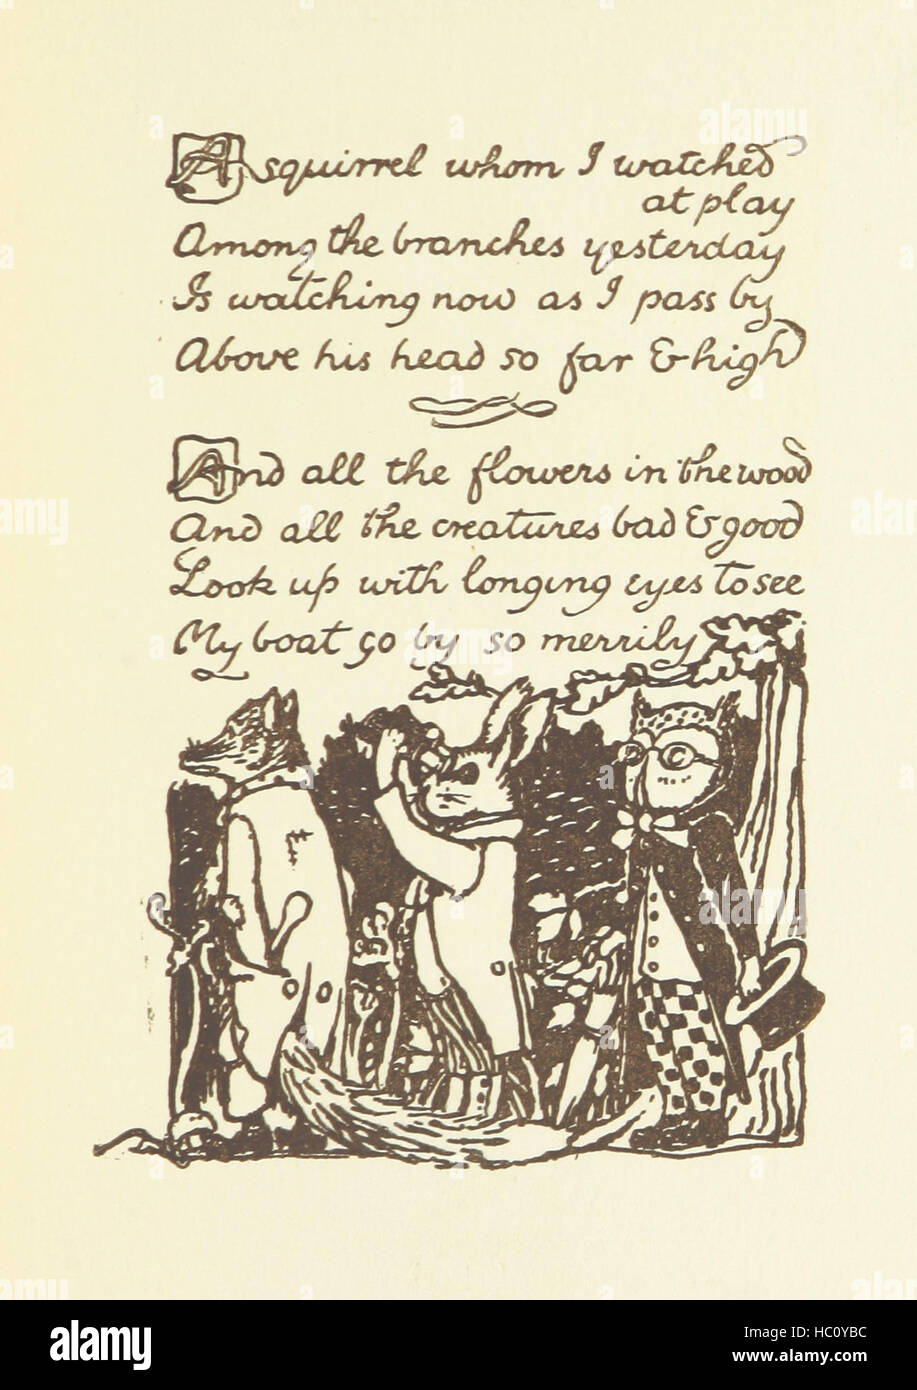 A squirrel whom I watched
at play
Among the branches yesterday
Is watching now as I pass by
Above his head so far & high
And all the flowers in the wood
And all the creatures bad & good
Look up with longing eyes to see
My boat go by so merrily
alamy
Image ID: HC0YBC
www.alamy.com